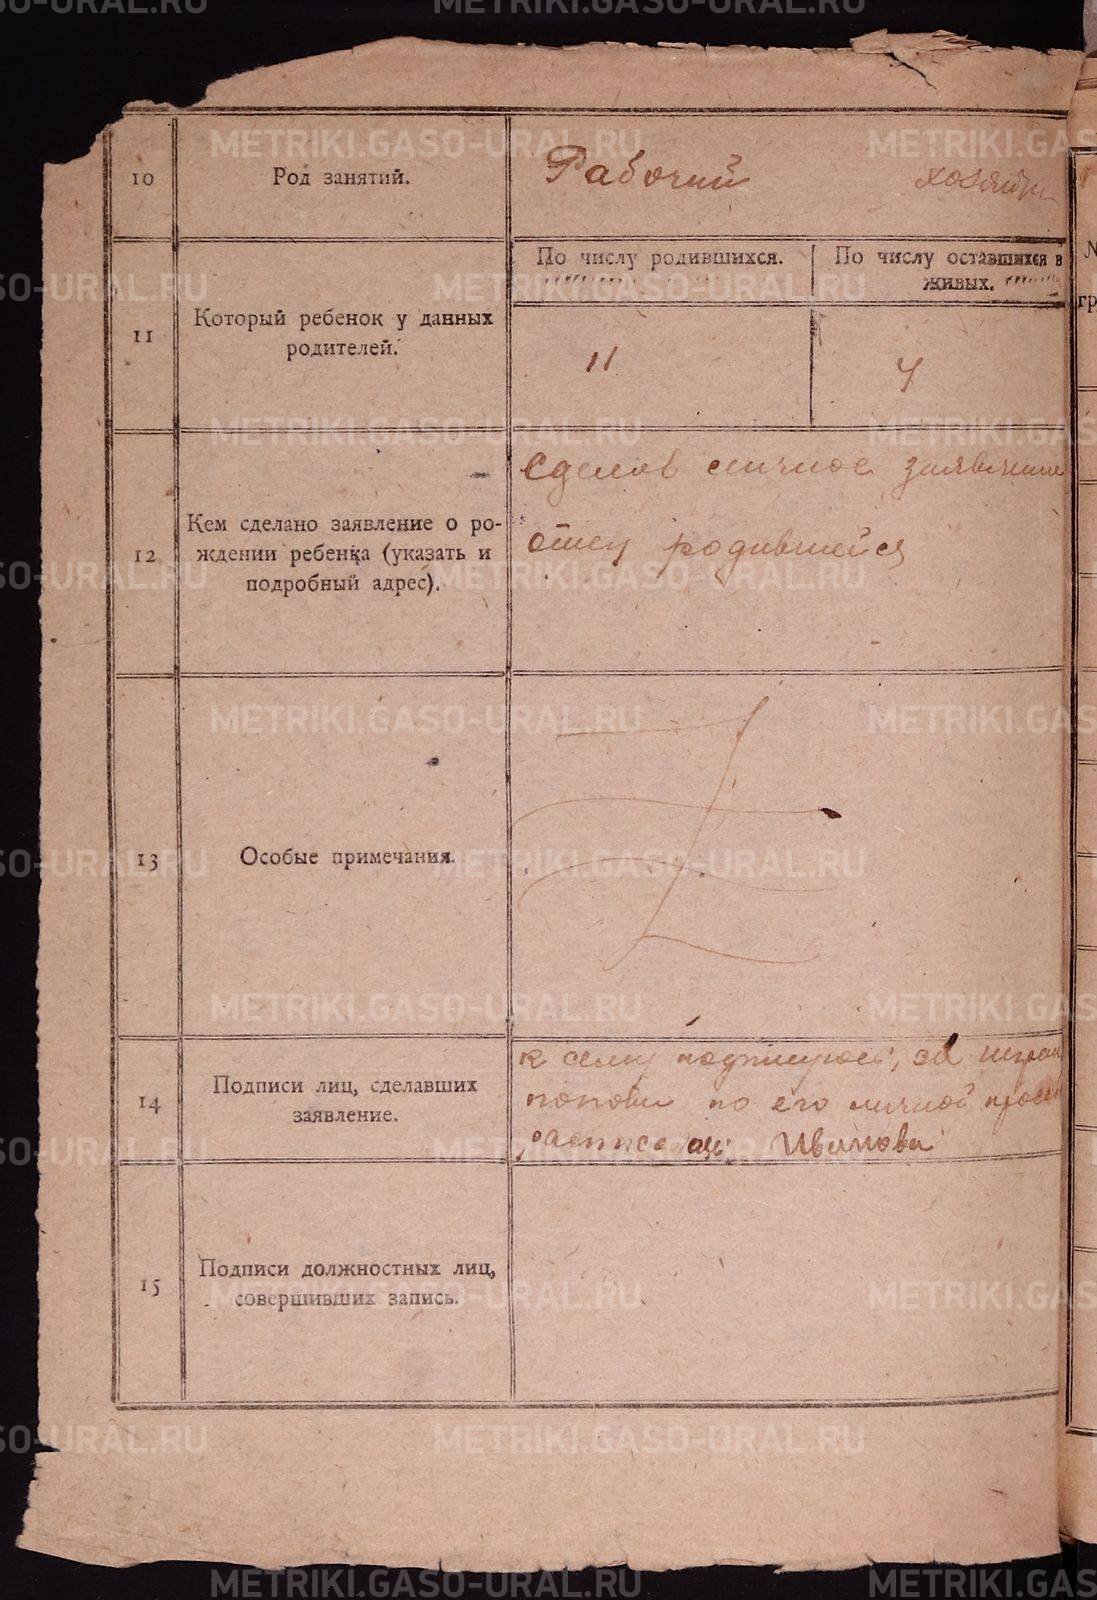 10
Род занятий.
Рабочий
11
Который ребенок у данных
родителей.
По числу родившихся.
По числу оставшихся в
живых.
11
4
12
Кем сделано заявление о ро-
ждении ребенка (указать и
подробный адрес).
личное
родившейся
13
Особые примечания.
14
Подписи лиц, сделавших
заявление.
к сему подписуюсь, за
по его личной
Иванова
15
Подписи должностных лиц,
совершивших запись.
METRIKI.GASO-URAL.RU